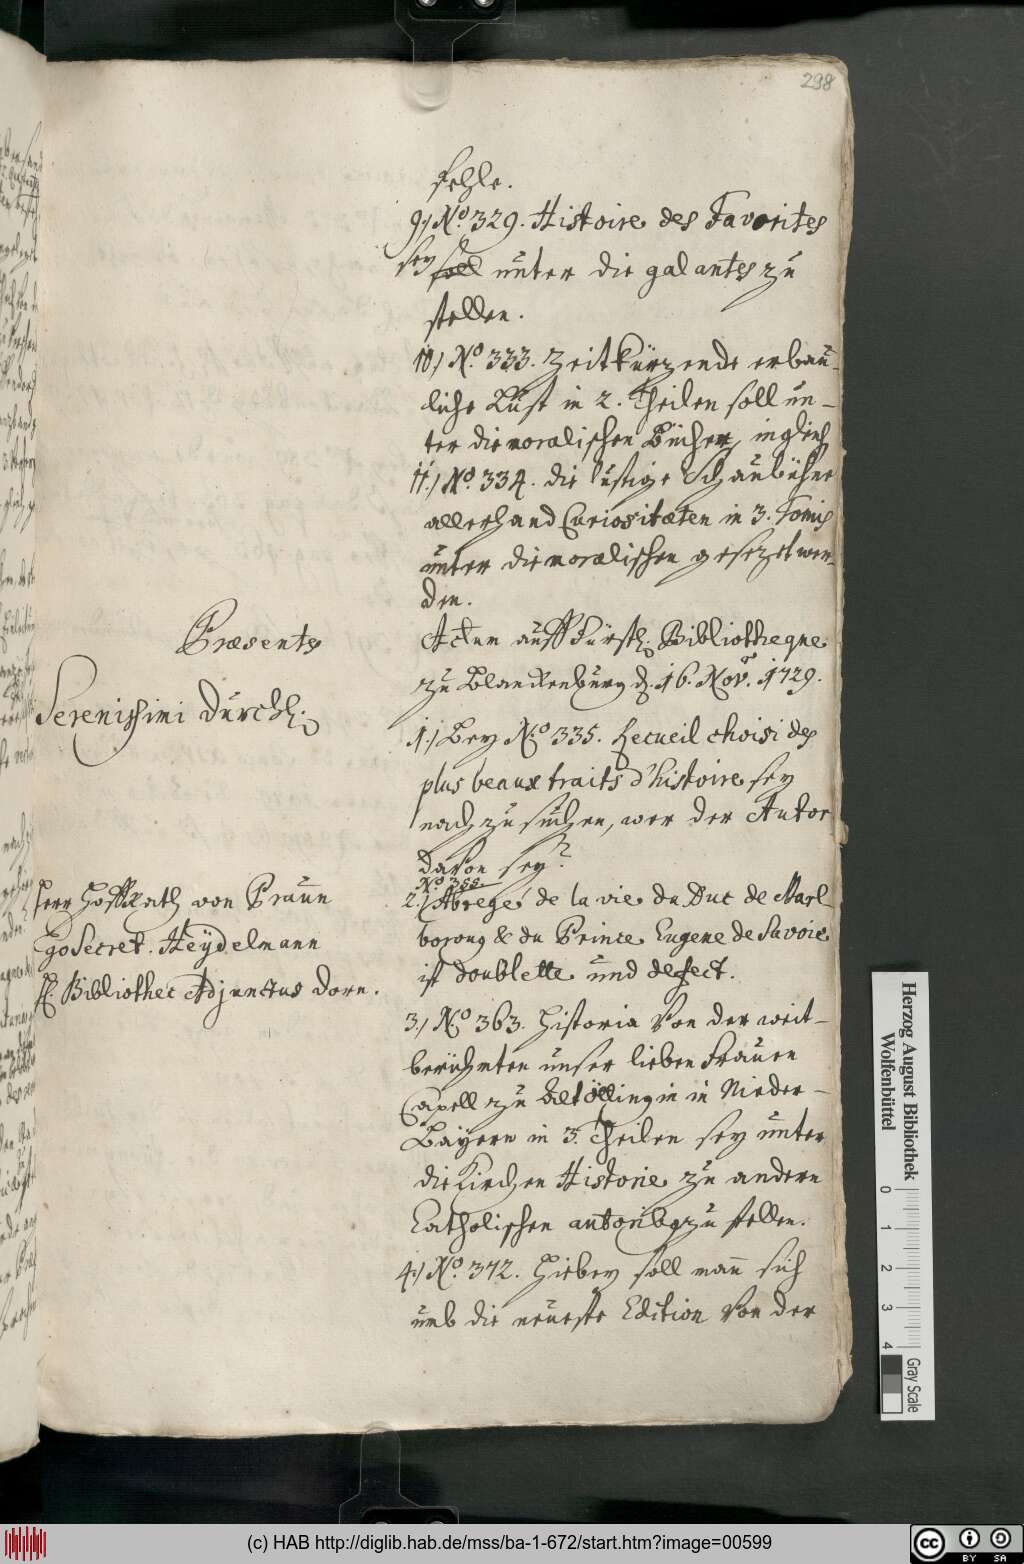 298
fehle.
9.) No. 329. Histoire des Favorites
sey soll unter die galantes zu
stellen.
10.) No. 333. Zeitkürzende erbau-
liche Lust in 2. Theilen soll un-
ter die moralischen Bücher, ingleich
11.) No. 334. die lustige Schaubühne
allerhand Curiositæten in 3. Tomis
unter die moralischen gesezet wer-
den.
Præsente
Serenissimi Durchl.
Actum auff Fürstl. Bibliotheque
zu Blanckenburg d. 16. Nov. 1729.
1.) Bey No. 335. Recueil choisi des
plus beaux traits d'histoire sey
nach zu suchen, wer der Autor
davon sey?
Herr Hoffrath von Praun
Secret. Heÿdelmann
Bibliothec Adjunctus Dorn.
No 355.
2.) Abregé de la vie du Duc de Marl
boroug & du Prince Eugene de Savoie
ist doublette und defect.
3.) No. 363. Historia von der weit-
berühmten unser lieben Frauen
Capell zu Altöttingin in Nieder-
Bäyern in 3. Theilen sey unter
die Kirchen Historie zu andern
Catholischen autoribq zu stellen.
4.) No. 372. Hiebey soll man sich
umb die neueste Edition von der
Herzog August Bibliothek
Wolfenbüttel
0 1 2 3 4
Gray Scale
(c) HAB http://diglib.hab.de/mss/ba-1-672/start.htm?image=00599
cc BY SA